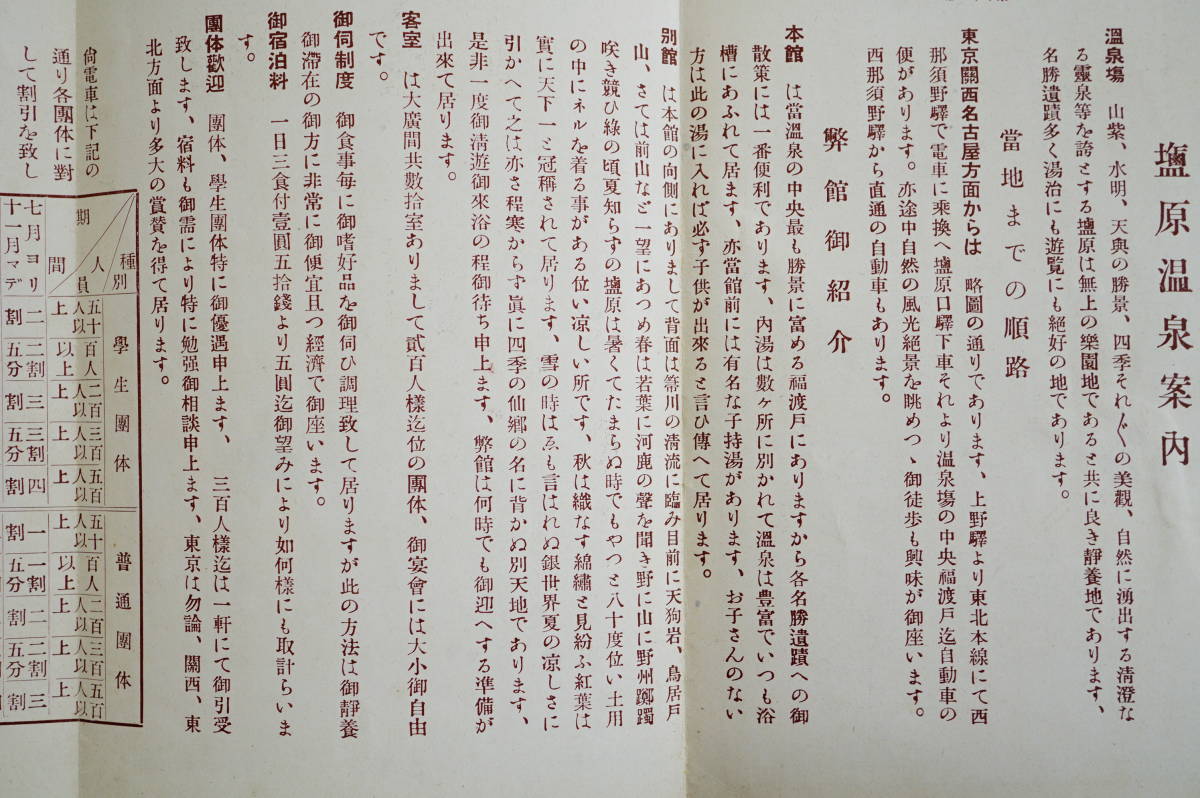 鹽原溫泉案內
溫泉塲　山紫、水明、天與の勝景、四季それ〴〵の美觀、自然に湧出する淸澄な
る靈泉等を誇とする鹽原は無上の樂園地であると共に良き靜養地であります、
名勝遺蹟多く湯治にも遊覽にも絕好の地であります。
當地までの順路
東京關西名古屋方面からは　略圖の通りであります、上野驛より東北本線にて西
那須野驛で電車に乘換へ鹽原口驛下車それより溫泉塲の中央福渡戶迄自動車の
便があります。亦途中自然の風光絕景を眺めつゝ御徒步も興味が御座います。
西那須野驛から直通の自動車もあります。
弊館御紹介
本館　は當溫泉の中央最も勝景に富める福渡戶にありますから各名勝遺蹟への御
散策には一番便利であります、內湯は數ヶ所に別かれて溫泉は豊富でいつも浴
槽にあふれて居ます、亦當館前には有名な子持湯があります、お子さんのない
方は此の湯に入れば必ず子供が出來ると言ひ傳へて居ります。
別館　は本館の向側にありまして背面は箒川の淸流に臨み目前に天狗岩、鳥居戶
山、さては前山など一望にあつめ春は若葉に河鹿の聲を聞き野に山に野州躑躅
咲き競ひ綠の頃夏知らずの鹽原は暑くてたまらぬ時でもやつと八十度位い土用
の中にネルを着る事がある位い凉しい所です、秋は織なす綿繡と見紛ふ紅葉は
實に天下一と冠稱されて居ります、雪の時はゑも言はれぬ銀世界夏の凉しさに
引かへて之は亦さ程寒からず眞に四季の仙鄕の名に背かぬ別天地であります、
是非一度御淸遊御來浴の程御待ち申上ます、弊館は何時でも御迎へする準備が
出來て居ります。
客室　は大廣間共數拾室ありまして貳百人樣迄位の團体、御宴會には大小御自由
です。
御伺制度　御食事每に御嗜好品を御伺ひ調理致して居りますが此の方法は御靜養
御滯在の御方に非常に御便宜且つ經濟で御座います。
御宿泊料　一日三食付壹圓五拾錢より五圓迄御望みにより如何樣にも取計らいま
す。
團体歡迎　團体、學生團体特に御優遇申上ます、　三百人樣迄は一軒にて御引受
致します、宿料も御需により特に勉强御相談申上ます、東京は勿論、關西、東
北方面より多大の賞賛を得て居ります。
尙電車は下記の
通り各團体に對
して割引を致し
種別
人員
期間
學生團体
普通團体
五十人以上
百人以上
二百人以上
三百人以上
五百人以上
五十人以上
百人以上
二百人以上
三百人以上
五百人以上
七月ヨリ十一月マデ
二割
二割五分
三割
三割五分
四割
一割
一割五分
二割
二割五分
三割